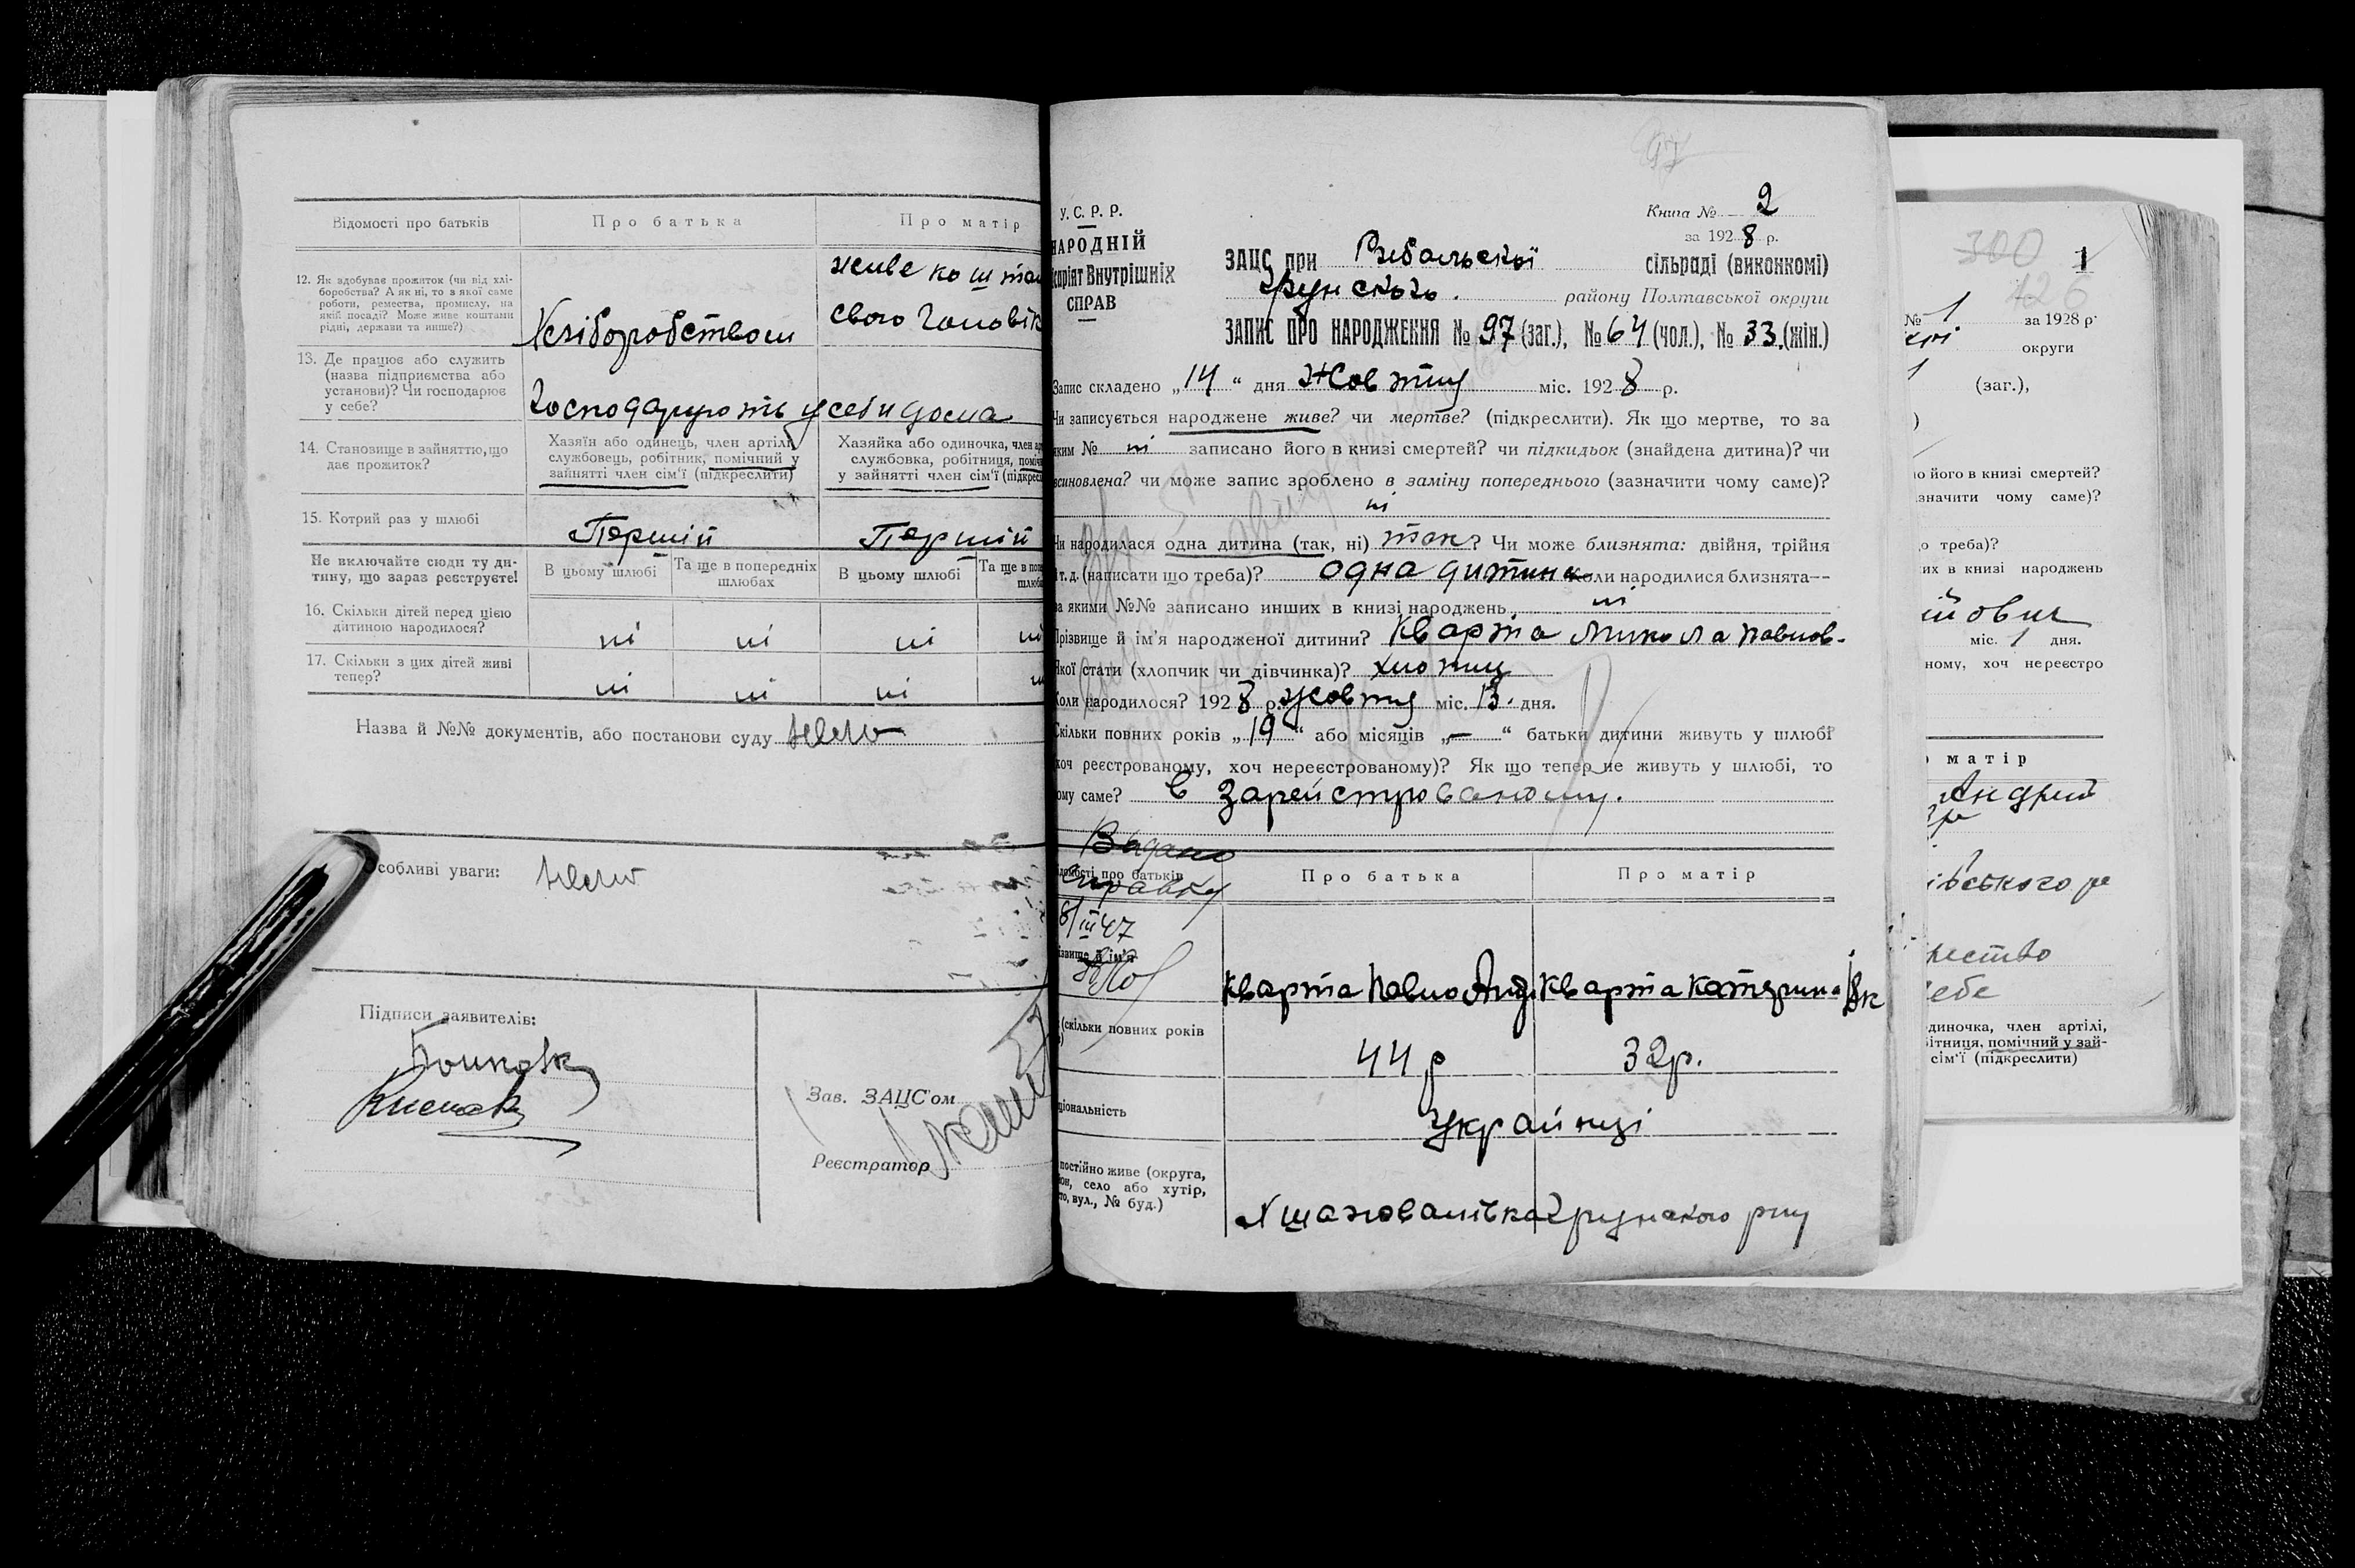 Відомості про батьків
Про батька
Про матір
12. Як здобуває прожиток (чи від хлі-
боробства? А як ні, то з якої саме
роботи, ремества, промислу, на
якій посаді? Може живе коштами
рідні, держави та инше?)
Хліборобством
живе коштам
свого чоловік
13. Де працює або служить
(назва підприємства або
установи)? Чи господарює
у себе?
господарують у себи дома
14. Становище в зайняттю, що
дає прожиток?
Хазяїн або одинець, член артілі,
службовець, робітник, помічний у
зайнятті член сім'ї (підкреслити)
Хазяйка або одиночка, член ар
службовка, робітниця, поміч
у зайнятті член сім'ї (підкрес
15. Котрий раз у шлюбі
Перший
Перший
Не включайте сюди ту ди-
тину, що зараз реєструєте!
В цьому шлюбі
Та ще в попередніх
шлюбах
В цьому шлюбі
Та ще в попе
шлюб
16. Скільки дітей перед цією
дитиною народилося?
ні ні ні ні
17. Скільки з цих дітей живі
тепер?
ні ні ні
Назва й №№ документів, або постанови суду нема
Особливі уваги: нема
Підписи заявителів:
Зав. ЗАЦС'ом
Реєстратор
97
У. С. Р. Р.
НАРОДНІЙ
комісаріят Внутрішніх
СПРАВ
Книга № 2
за 1928 р.
ЗАЦС при Рибальскій сільраді (виконкомі)
Грунского. району Полтавської округи
ЗАПИС ПРО НАРОДЖЕННЯ № 97 (заг.), № 64 (чол.), № 33. (жін.)
Запис складено „14" дня Жовтня міс. 1928 р.
Чи записується народжене живе? чи мертве? (підкреслити). Як що мертве, то за
яким № ні записано його в книзі смертей? чи підкидьок (знайдена дитина)? чи
всиновлена? чи може запис зроблено в заміну попереднього (зазначити чому саме)?
ні
Чи народилася одна дитина (так, ні) так? Чи може близнята: двійня, трійня
і т. д. (написати що треба)? одна дитина коли народилися близнята—
за якими №№ записано инших в книзі народжень ні
Прізвище й ім'я народженої дитини? Кварта Микола Павлов.
Якої стати (хлопчик чи дівчинка)? хлопец
Коли народилося? 1928 р. жовтня міс. 13. дня.
Скільки повних років „19" або місяців „—" батьки дитини живуть у шлюбі
хоч реєстрованому, хоч нереєстрованому)? Як що тепер не живуть у шлюбі, то
чому саме? в зарейстрованому.
Видано
справку
8/III 47
Відомості про батьків
Про батька
Про матір
Прізвище й ім'я
Кварта Павло Анд
Кварта Катерина
(скільки повних років
44 р
32 р.
національність
Українці
постійно живе (округа,
район, село або хутір,
місто, вул., № буд.)
Грунского рну
300
126
1
№ 1 за 1928 р.
округи
(заг.),
)
но його в книзі смертей?
значити чому саме)?
о треба)?
их в книзі народжень
йович
міс. 1 дня.
ному, хоч нереєстро
матір
вського
себе
диночка, член артілі,
бітниця, помічний у зай-
сім'ї (підкреслити)